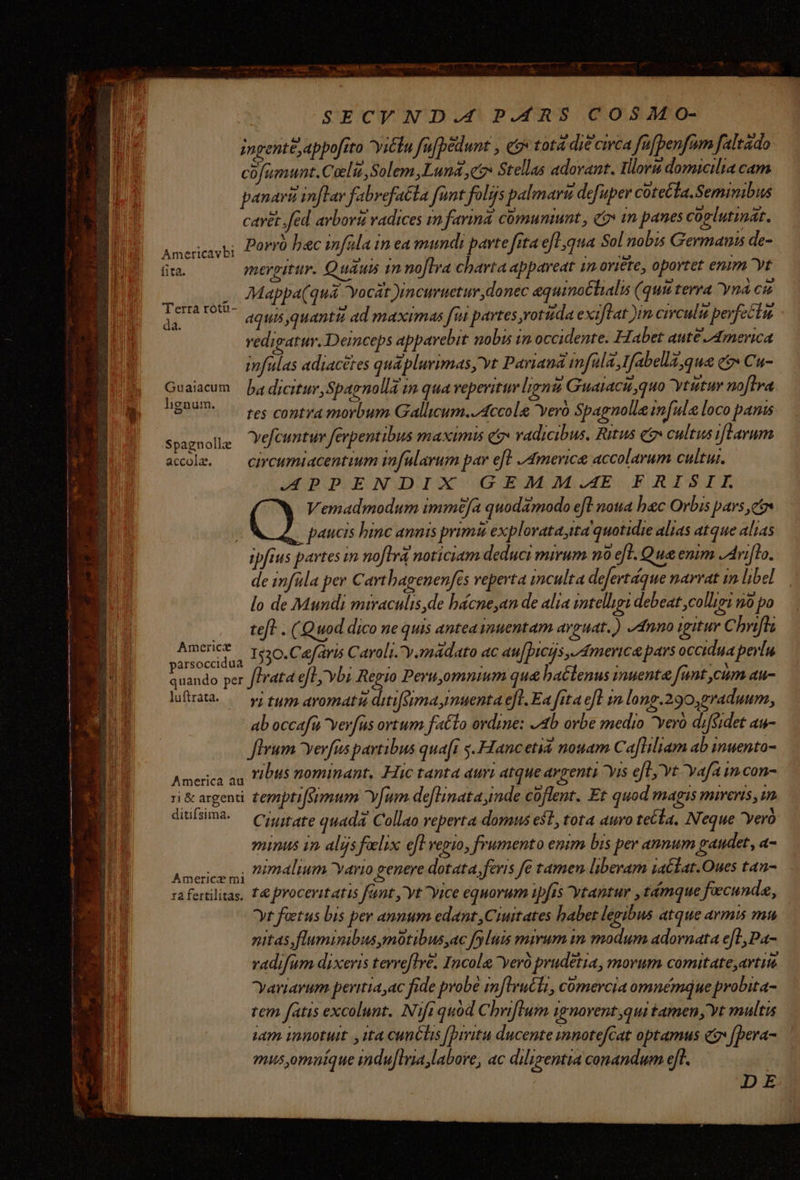 SECVNDA PARS COSMO-
ingentẽ, appofito victu fufpẽdunt, & totã diẽ circa fufpenfum faltãdo
cõfumunt. Cœlũ, Solem, Lunã, & Stellas adorant. Illorũ domicilia cam
panarũ inftar fabrefacta funt folijs palmarũ defuper cõtecta. Seminibus
carẽt, fed arborũ radices in farinã cõmuniunt, & in panes cõglutinãt.
Americævbi
fita.
Porrò hæc infula in ea mundi parte fita eft, qua Sol nobis Germanis de-
mergitur. Quãuis in noftra charta appareat in oriẽte, oportet enim vt
Mappa (quã vocãt) incuruetur, donec æquinoctialis (quũ terra vnà cũ
Terra rotũ-
da.
aquis, quantũ ad maximas fui partes, rotũda exiftat) in circulũ perfectũ
redigatur. Deinceps apparebit nobis in occidente. Habet autẽ America
infulas adiacẽtes quãplurimas, vt Parianã infulã, Ifabellã, quæ & Cu-
Guaiacum
lignum.
ba dicitur, Spagnollã in qua reperitur lignũ Guaiacũ, quo vtũtur noftra
tes contra morbum Gallicum. Accolæ verò Spagnollæ infulæ loco panis
Spagnollæ
accolæ.
vefcuntur ferpentibus maximis & radicibus. Ritus & cultus iftarum
circumiacentium infularum par eft Americæ accolarum cultui.
APPENDIX GEMMAE FRISII.
QVemadmodum immẽfa quodãmodo eft noua hæc Orbis pars, &
paucis hinc annis primũ explorata, ita quotidie alias atque alias
ipfius partes in noftrã noticiam deduci mirum nõ eft. Quæ enim Arifto.
de infula per Carthagenenfes reperta inculta defertáque narrat in libel
lo de Mundi miraculis, de hácne, an de alia intelligi debeat, colligi nõ po
teft. (Quod dico ne quis antea inuentam arguat.) Anno igitur Chrifti
Americæ
parsoccidua
quando per
luftrata.
1530. Cæfaris Caroli. V. mãdato ac aufpicijs, Americæ pars occidua perlu
ftrata eft, vbi Regio Peru, omnium quæ hactenus inuentæ funt, cùm au-
ri tum aromatũ ditifsima, inuenta eft. Ea fita eft in long. 290, graduum,
ab occafu verfus ortum facto ordine: Ab orbe medio verò difsidet au-
ftrum verfus partibus quafi 5. Hanc etiã nouam Caftiliam ab inuento-
America au
ri & argenti
ditifsima.
ribus nominant. Hic tanta auri atque argenti vis eft, vt vafa in con-
temptifsimum vfum deftinata, inde cõftent. Et quod magis mireris, in
Ciuitate quadã Collao reperta domus eft, tota auro tecta. Neque verò
minus in alijs fœlix eft regio, frumento enim bis per annum gaudet, a-
Americæ mi
ra fertilitas.
nimalium vario genere dotata, feris fe tamen liberam iactat. Oues tan-
tæ proceritatis funt, vt vice equorum ipfis vtantur, támque fœcundæ,
vt fœtus bis per annum edant, Ciuitates habet legibus atque armis mu
nitas, fluminibus, mõtibus, ac fyluis mirum in modum adornata eft, Pa-
radifum dixeris terreftrẽ. Incolæ verò prudẽtia, morum comitate, artiũ
variarum peritia, ac fide probè inftructi, cõmercia omnémque probita-
tem fatis excolunt. Nifi quòd Chriftum ignorent, qui tamen, vt multis
iam innotuit, ita cunctis fpiritu ducente innotefcat optamus & fpera-
mus, omníque induftria, labore, ac diligentia conandum eft.
DE